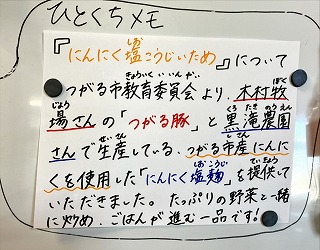 ひとくちメモ
『にんにく塩こうじいため』について
つがる市教育委員会より、木村牧
場さんの「つがる豚」と黒滝農園
さんで生産している、つがる市産にんに
くを使用した「にんにく塩麹」を提供して
いただきました。たっぷりの野菜と一緒
に炒め、ごはんが進む一品です!